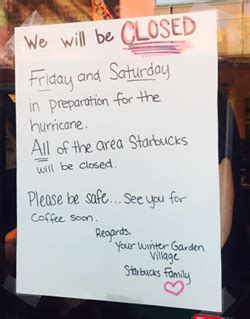 We will be CLOSED
Friday and Saturday
in preparation for the
hurricane.
All of the area Starbucks
will be closed.
Please be safe... See you for
Coffee soon.
Regards,
Your Winter Garden
Village
Starbucks Family